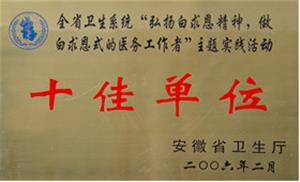 全省卫生系统“弘扬白求恩精神，做
白求恩式的医务工作者”主题实践活动
十佳单位
安徽省卫生厅
二〇〇六年二月